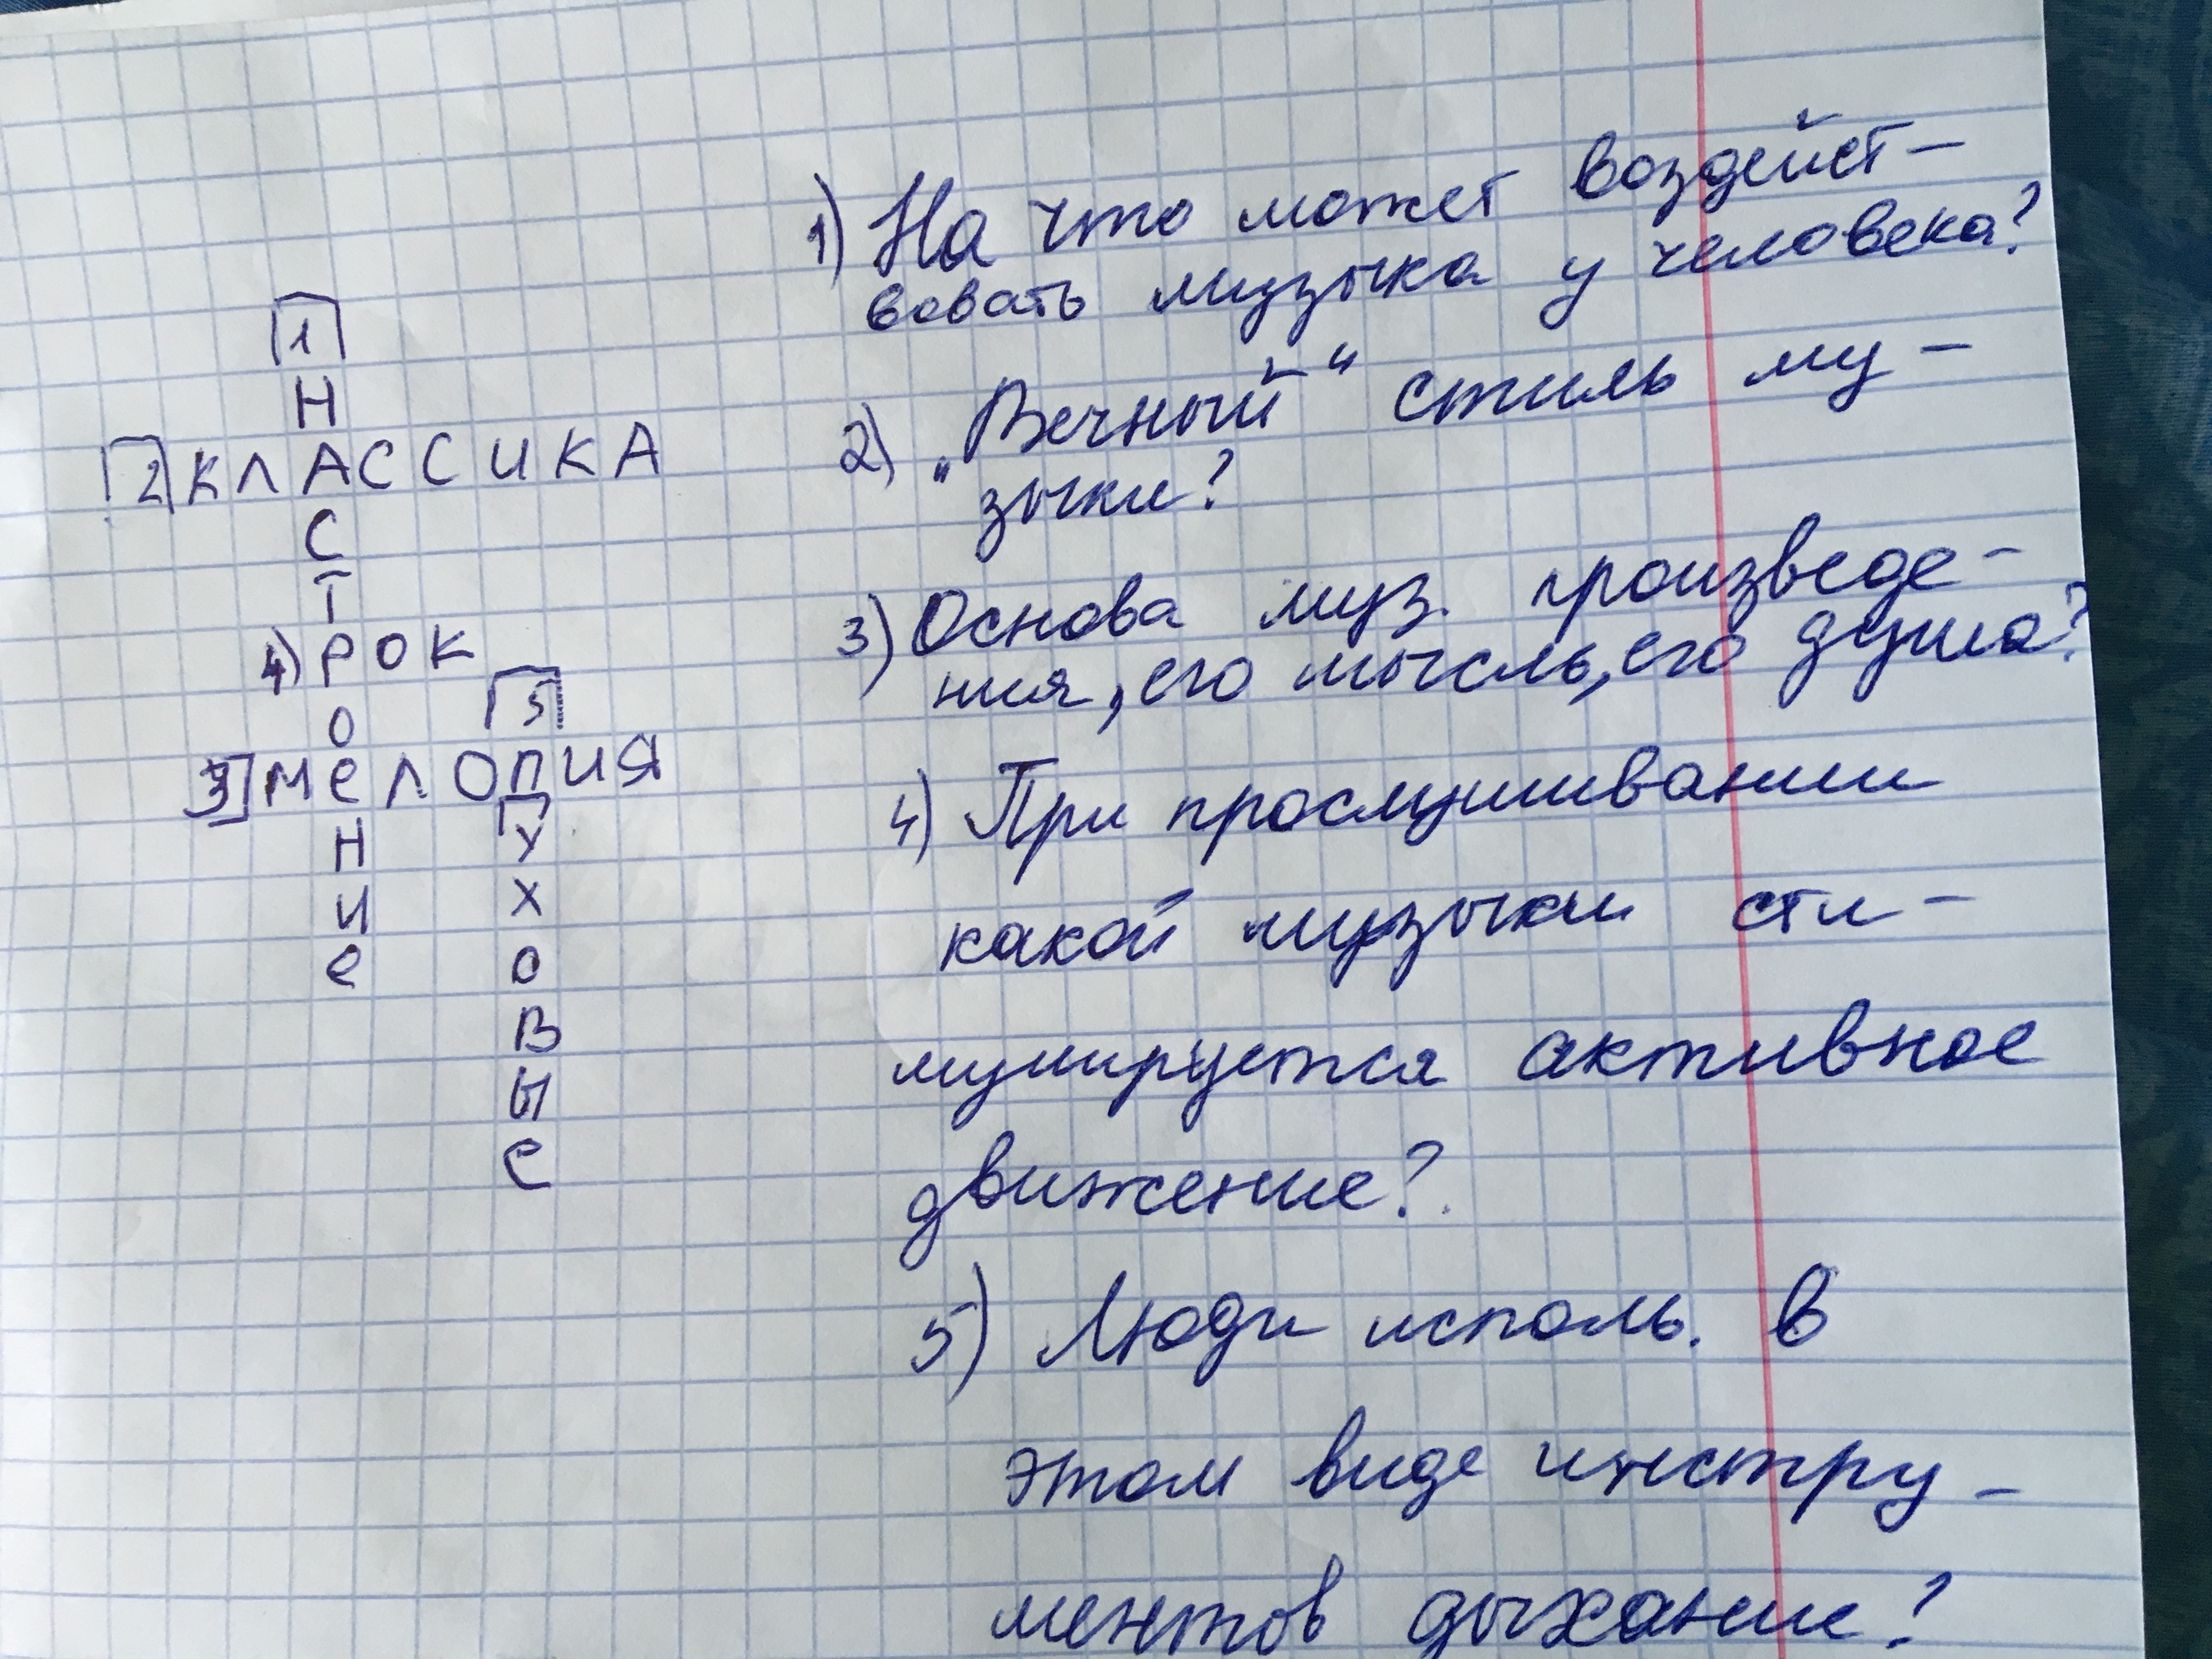 1
Н
2 КЛАССИКА
С
Т
4) РОК
О
5
3 МеЛОДИЯ
Н
У
И
Х
е
О
В
Ы
Е
1) На что может воздейст-
вовать музыка у человека?
2) „Вечный“ стиль му-
зыки?
3) Основа муз. произведе-
ния, его мысль, его душа?
4) При прослушивании
какой музыки сти-
мулируется активное
движение?
5) Люди исполь. в
этом виде инстру-
ментов дыхание?